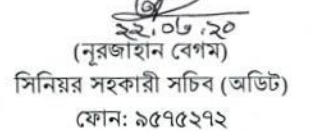 ২২.০৬.২০
(নূরজাহান বেগম)
সিনিয়র সহকারী সচিব (অডিট)
ফোন: ৯৫৭৫২৭২